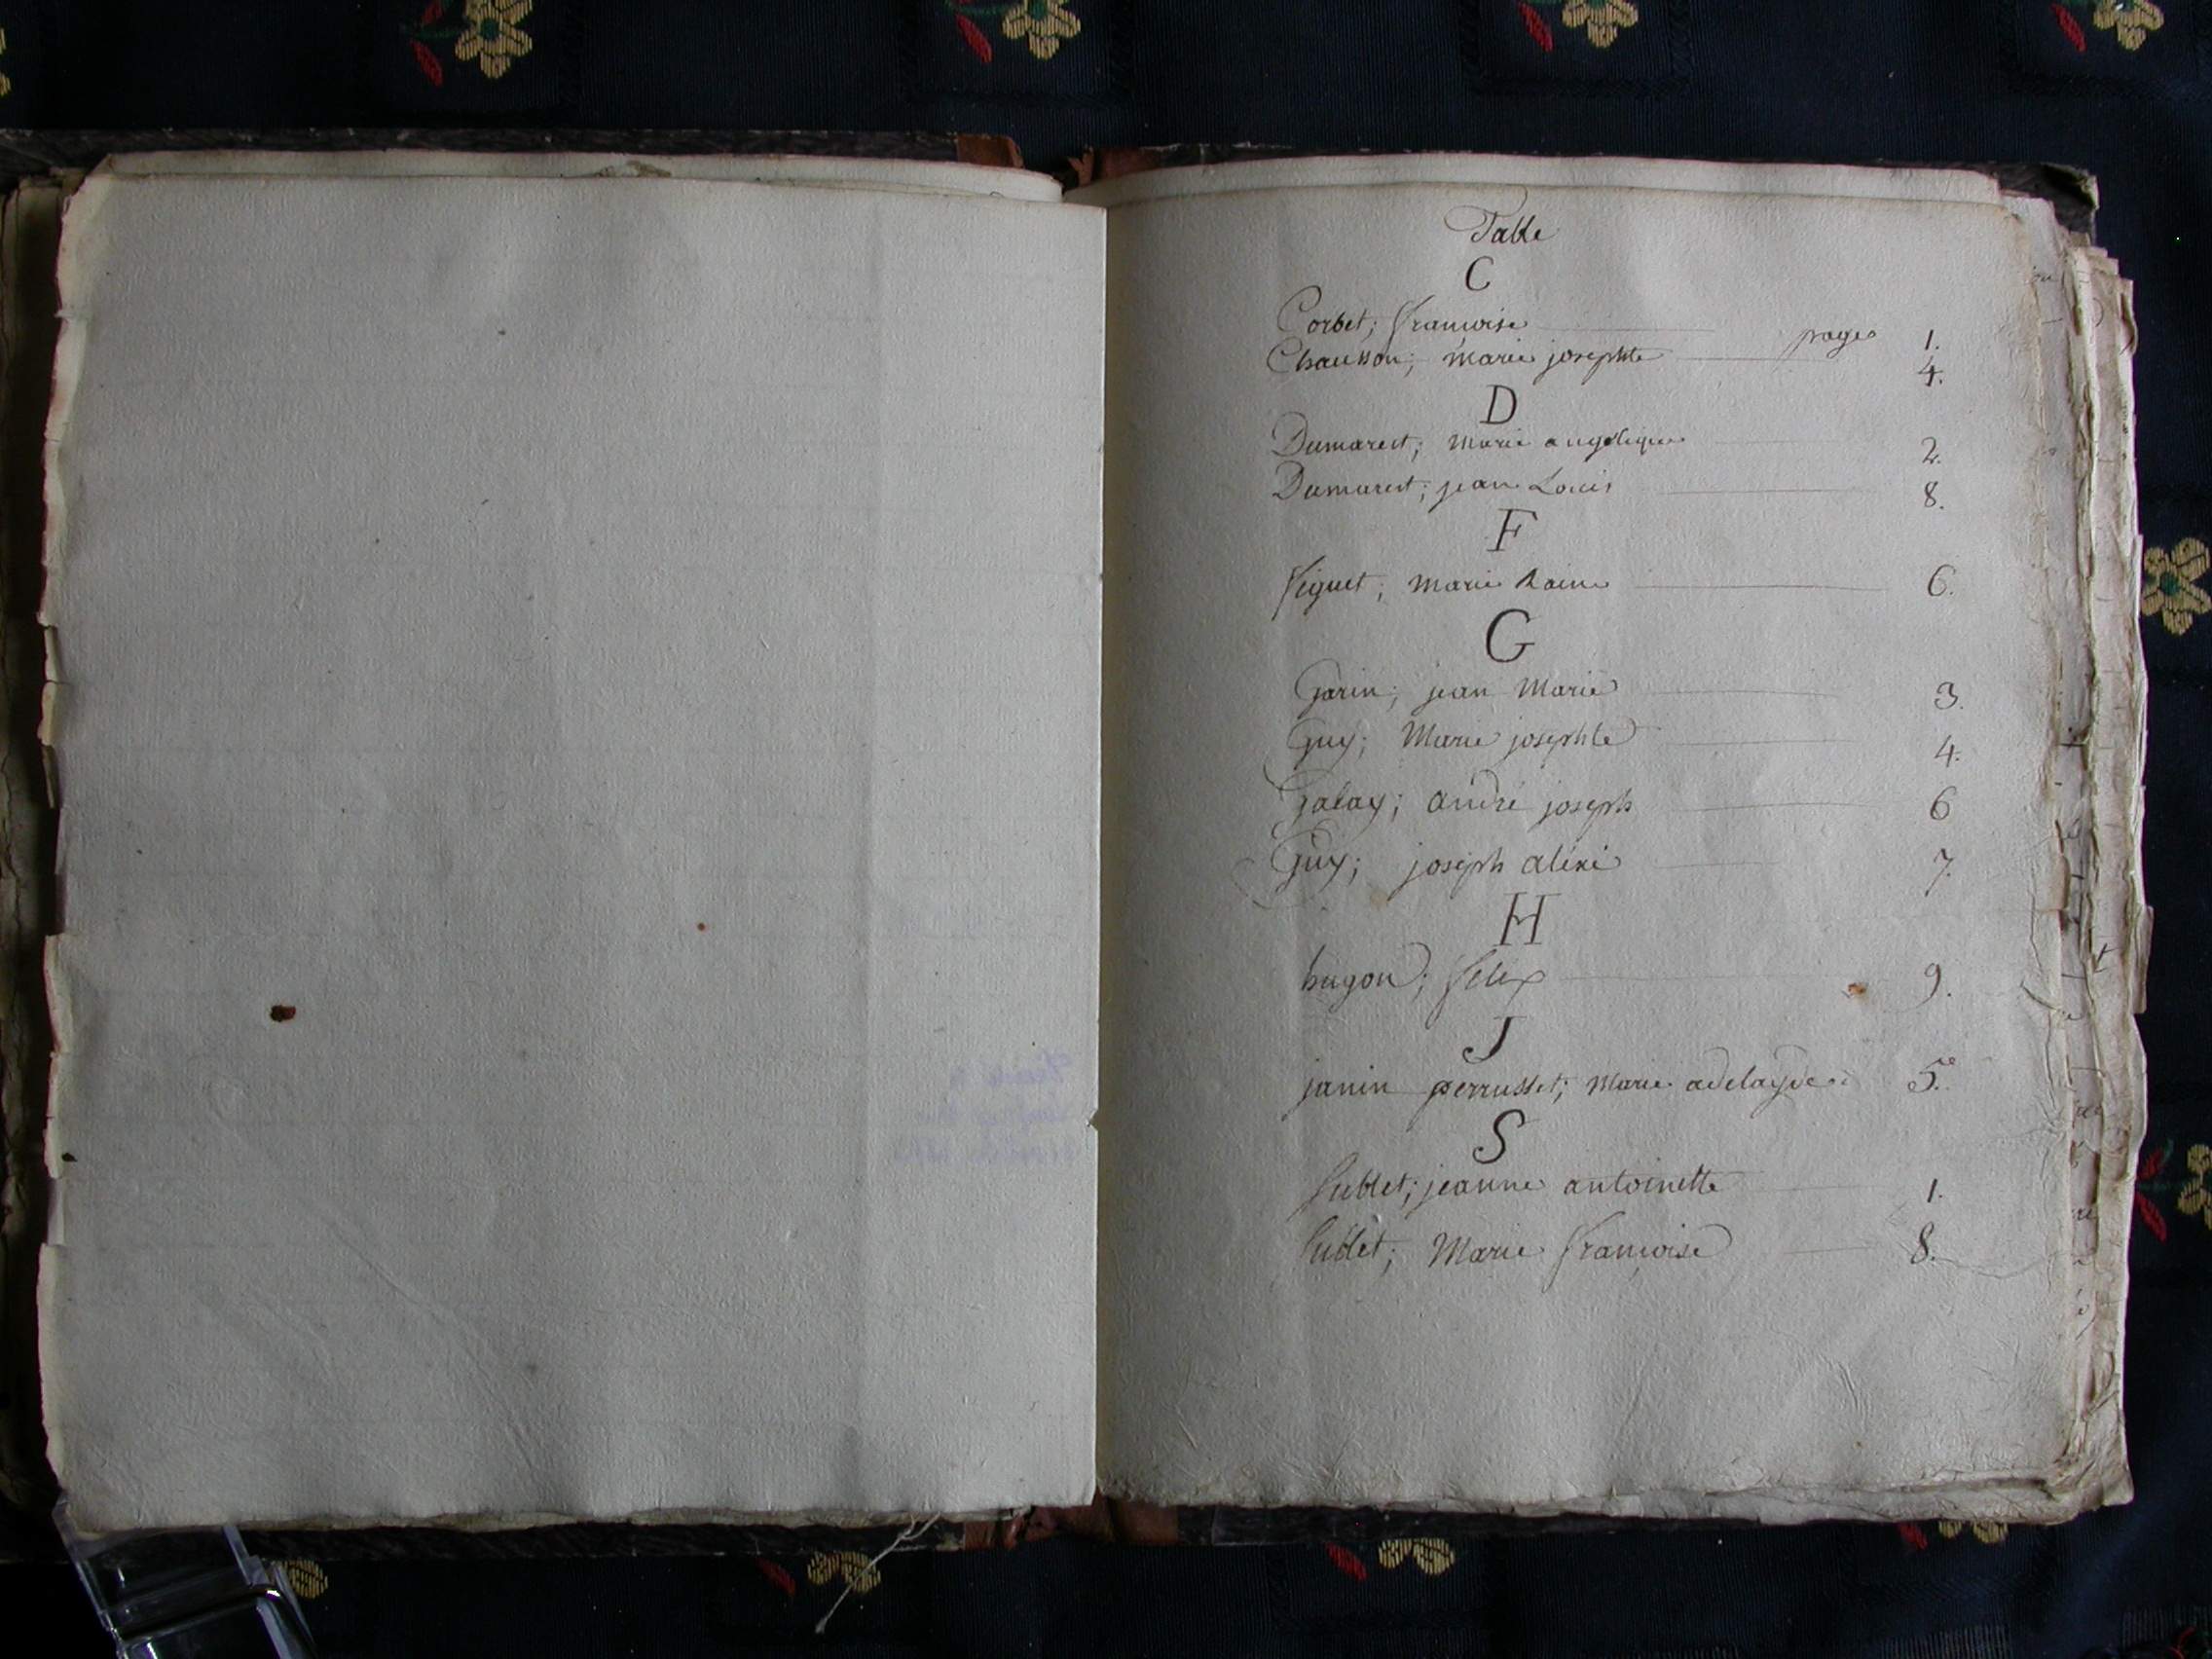 Table
C
Corbet; françoise pages 1.
Chausson; marie josephte 4.
D
Dumarest; marie angelique 2.
Dumarest; jean Louis 8.
F
figuet; marie Raine 6.
G
Garin; jean Marie 3.
Guy; Marie josephte 4.
Galay; andré joseph 6
Guy; joseph alexi 7.
H
hugon; felix 9.
J
janin perrusset; Marie adelayde 5.
S
Sublet; jeanne antoinette 1.
Sublet; Marie françoise 8.